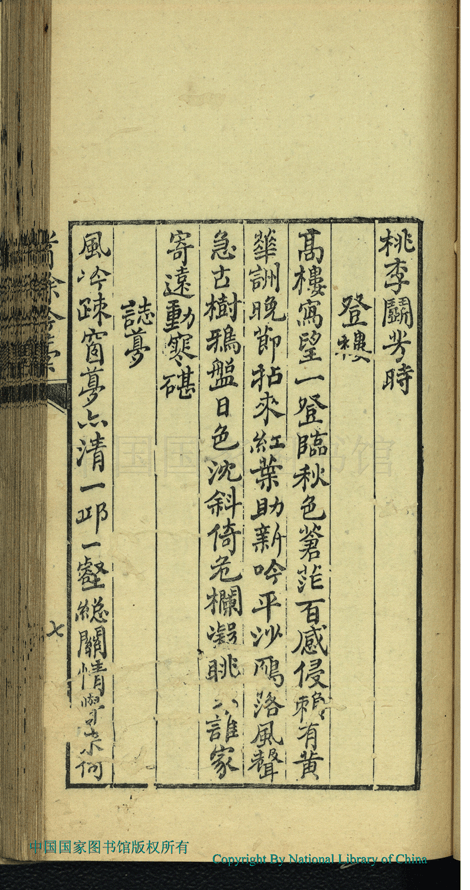 桃李鬭芳時
登樓
高樓寓望一登臨秋色蒼茫百感侵賴有黃
華訓晚節拈來紅葉助新吟平沙鴈落風聲
急古樹鴉盤日色沈斜倚危欄凝眺八誰家
寄遠動寒碪
誌夢
風吟疎窗夢亦清一邱一壑總關情覺來何
七
中国国家图书馆版权所有
Copyright By National Library of China